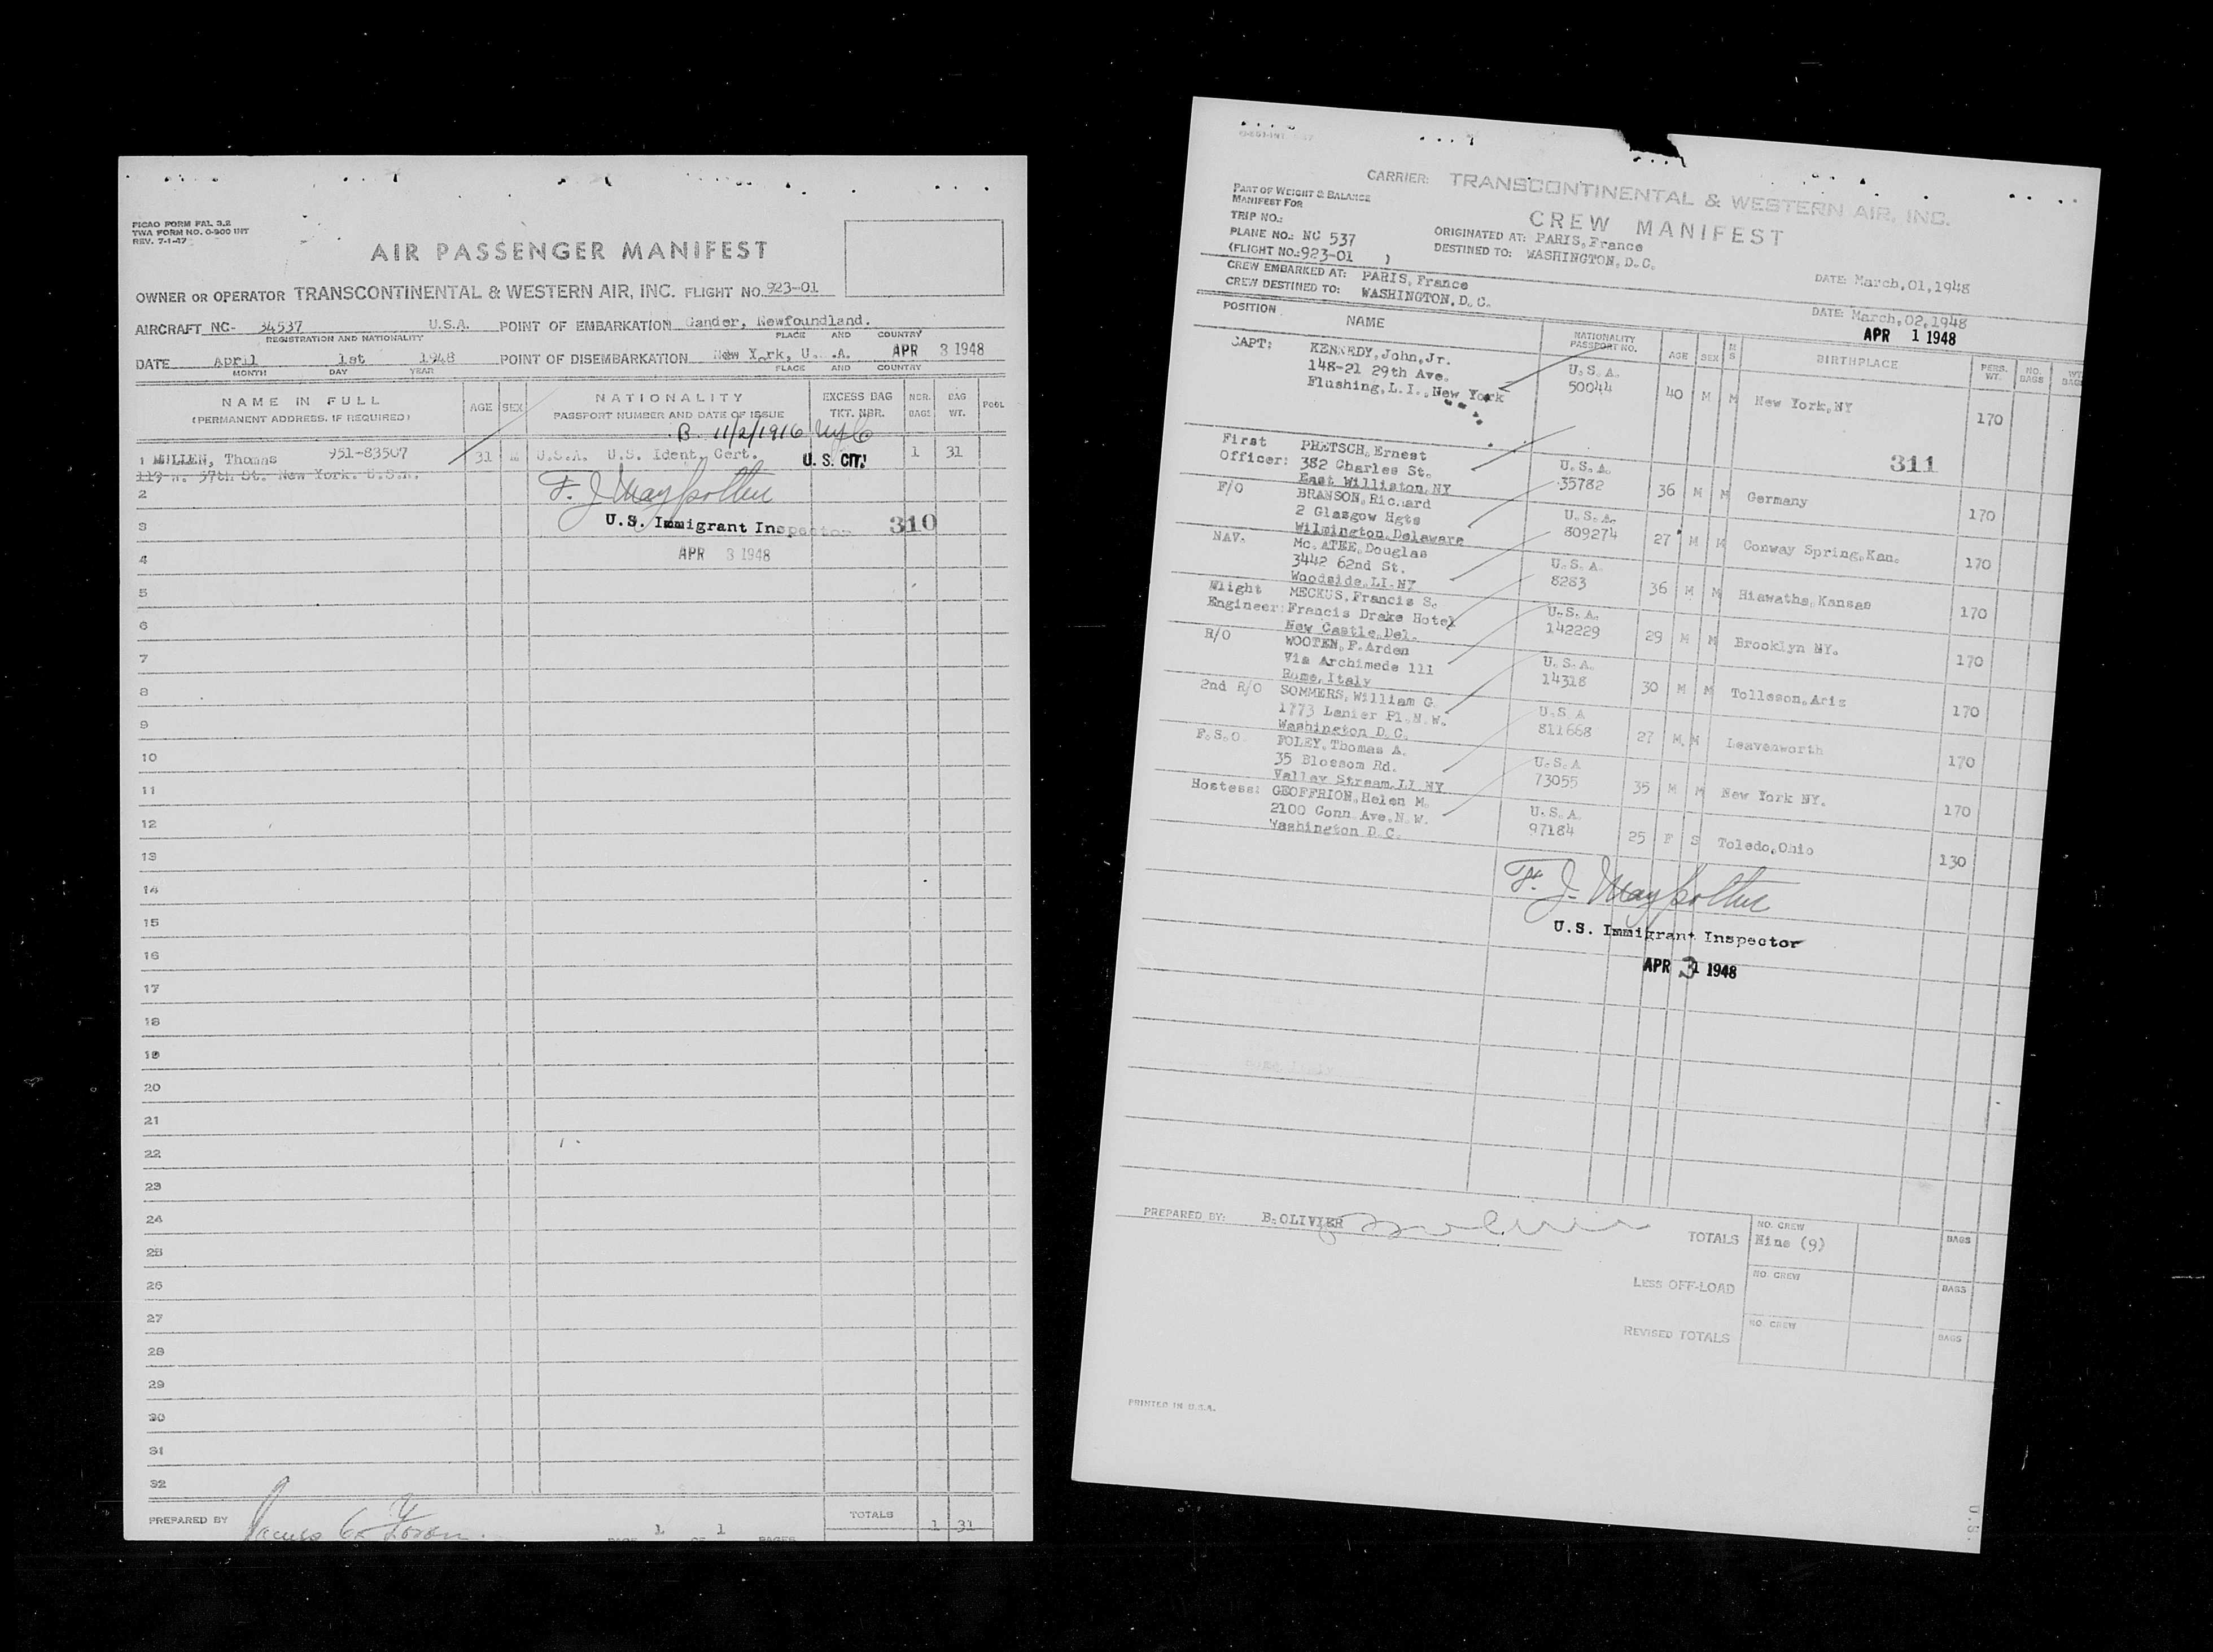 FICAO FORM FAL 3.2
TWA FORM NO. 0-900 INT
REV. 7-1-47
AIR PASSENGER MANIFEST
OWNER OR OPERATOR TRANSCONTINENTAL & WESTERN AIR, INC. FLIGHT NO. 923-01
AIRCRAFT NC- 34537 U.S.A. POINT OF EMBARKATION Gander, Newfoundland.
REGISTRATION AND NATIONALITY PLACE AND COUNTRY
DATE April 1st 1948 POINT OF DISEMBARKATION New York, U. .A. APR 3 1948
MONTH DAY YEAR PLACE AND COUNTRY
NAME IN FULL AGE SEX NATIONALITY EXCESS BAG NBR. BAG POOL
(PERMANENT ADDRESS, IF REQUIRED) PASSPORT NUMBER AND DATE OF ISSUE TKT. NBR. BAGS WT.
B. 11/2/1916 NYC
1 MULLEN, Thomas 951-83507 31 M U.S.A. U.S. Ident. Cert. U.S. CIT. 1 31
119 W. 57th St. New York. U.S.A.
2
3 U.S. Immigrant Inspector 310
4 APR 3 1948
5
6
7
8
9
10
11
12
13
14
15
16
17
18
19
20
21
22
23
24
25
26
27
28
29
30
31
32
PREPARED BY TOTALS 1 31
PAGE 1 OF 1 PAGES
CARRIER: TRANSCONTINENTAL & WESTERN AIR, INC.
CREW MANIFEST
PART OF WEIGHT & BALANCE
MANIFEST FOR
TRIP NO.:
PLANE NO.: NC 537 ORIGINATED AT: PARIS, France
(FLIGHT NO.: 923-01 ) DESTINED TO: WASHINGTON, D.C.
CREW EMBARKED AT: PARIS, France DATE: March, 01, 1948
CREW DESTINED TO: WASHINGTON, D.C. DATE: March, 02, 1948
APR 1 1948
POSITION NAME NATIONALITY PASSPORT NO. AGE SEX M S BIRTHPLACE PERS. WT. NO. BAGS WT. BAGS
CAPT: KENNEDY, John, Jr. U.S.A.
148-21 29th Ave. 50044 40 M M New York, NY 170
Flushing, L.I., New York
311
First PRETSCH, Ernest U.S.A.
Officer: 382 Charles St. 35782 36 M M Germany 170
East Williston, NY
F/O BRANSON, Richard U.S.A.
2 Glasgow Hgts 809274 27 M M Conway Spring, Kan. 170
Wilmington, Delaware
NAV. Mc. ATEE, Douglas U.S.A.
3442 62nd St. 8283 36 M M Hiawatha, Kansas 170
Woodside, LI. NY
Flight MECKUS, Francis S. U.S.A.
Engineer: Francis Drake Hotel 142229 29 M M Brooklyn NY. 170
New Castle, Del.
R/O WOOTEN, F. Arden U.S.A.
Via Archimede 111 14318 30 M M Tolleson, Ariz 170
Rome, Italy
2nd R/O SOMMERS, William G. U.S.A
1773 Lanier Pl. N.W. 811668 27 M M Leavenworth 170
Washington D.C.
F.S.O. FOLEY, Thomas A. U.S.A
35 Blossom Rd. 73055 35 M M New York NY. 170
Valley Stream, LI NY
Hostess: GEOFFRION, Helen M. U.S.A.
2100 Conn Ave, N.W. 97184 25 F S Toledo, Ohio 130
Washington D.C.
U.S. Immigrant Inspector
APR 3 1948
PREPARED BY: B. OLIVIER TOTALS NO. CREW Nine (9) BAGS
LESS OFF-LOAD NO. CREW BAGS
REVISED TOTALS NO. CREW BAGS
PRINTED IN U.S.A.
U.S.